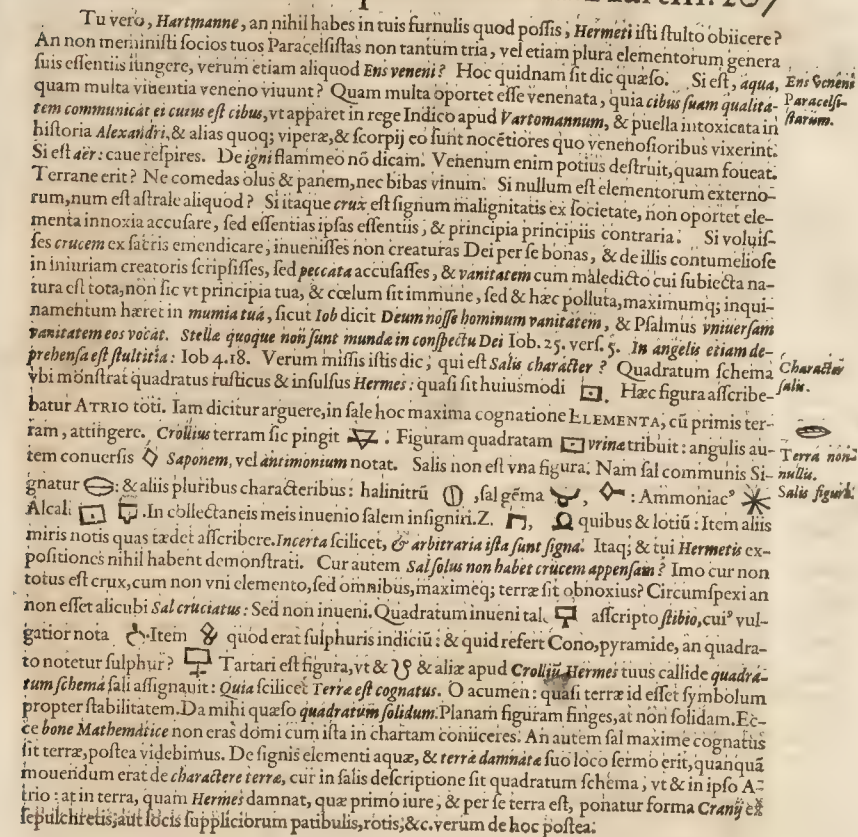 207
Tu vero, Hartmanne, an nihil habes in tuis furnulis quod possis, Hermeti isti stulto obiicere?
An non meministi socios tuos Paracelsistas non tantum tria, vel etiam plura elementorum genera
suis essentiis iungere, verum etiam aliquod Ens veneni? Hoc quidnam sit dic quæso. Si est, aqua,
Ens Veneni
quam multa viuentia veneno viuunt? Quam multa oportet esse venenata, quia cibus suam qualita-
Paracelsi-
tem communicat ei cuius est cibus, vt apparet in rege Indico apud Vartomannum, & puella intoxicata in
starum.
historia Alexandri, & alias quoq; viperæ, & scorpij eo sunt nocẽtiores quo venenosioribus vixerint.
Si est aër: caue respires. De igni flammeo nõ dicam. Venenum enim potius destruit, quam foueat.
Terrane erit? Ne comedas olus & panem, nec bibas vinum. Si nullum est elementorum externo-
rum, num est astrale aliquod? Si itaque crux est signum malignitatis ex societate, non oportet ele-
menta innoxia accusare, sed essentias ipsas essentiis, & principia principiis contraria. Si voluis-
ses crucem ex sacris emendicare, inuenisses non creaturas Dei per se bonas, & de illis contumeliose
in iniuriam creatoris scripsisses, sed peccata accusasses, & vanitatem cum maledicto cui subiecta na-
tura est tota, non sic vt principia tua, & cœlum sit immune, sed & hæc polluta, maximumq; inqui-
namentum hæret in mumia tua, sicut Iob dicit Deum nosse hominum vanitatem, & Psalmus vniuersam
vanitatem eos vocat. Stellæ quoque non sunt mundæ in conspectu Dei Iob. 25. vers. 5. In angelis etiam de-
prehensa est stultitia: Iob 4.18. Verum missis istis dic, qui est Salis character? Quadratum schema
Character
vbi monstrat quadratus rusticus & insulsus Hermes: quasi sit huiusmodi ⊡. Hæc figura asscribe-
salis.
batur ATRIO toti. Iam dicitur arguere, in sale hoc maxima cognatione ELEMENTA, cũ primis ter-
ram, attingere. Crollius terram sic pingit. Figuram quadratam vrinæ tribuit: angulis au-
Terra non-
tem conuersis ◇ Saponem, vel antimonium notat. Salis non est vna figura. Nam sal communis Si-
nullis.
gnatur: & aliis pluribus characteribus: halinitrũ, sal gẽma, : Ammoniacꝰ
Salis figuræ.
Alcali. In collectaneis meis inuenio salem insigniri. Z., quibus & lotiũ: Item aliis
miris notis quas tædet asscribere. Incerta scilicet, & arbitraria ista sunt signa. Itaq; & tui Hermetis ex-
positiones nihil habent demonstrati. Cur autem Sal solus non habet crucem appensam? Imo cur non
totus est crux, cum non vni elemento, sed omnibus, maximeq; terræ sit obnoxius? Circumspexi an
non esset alicubi Sal cruciatus: Sed non inueni. Quadratum inueni tale asscripto stibio, cuiꝰ vul-
gatior nota. Item quod erat sulphuris indiciũ: & quid refert Cono, pyramide, an quadra-
to notetur sulphur? Tartari est figura, vt & & aliæ apud Crolliũ. Hermes tuus callide quadra-
tum schema sali assignauit: Quia scilicet Terræ est cognatus. O acumen: quasi terræ id esset symbolum
propter stabilitatem. Da mihi quæso quadratum solidum. Planam figuram finges, at non solidam. Ec-
ce bone Mathematice non eras domi cum ista in chartam coniiceres. An autem sal maxime cognatus
sit terræ, postea videbimus. De signis elementi aquæ, & terræ damnatæ suo loco sermo erit, quanquã
mouendum erat de charactere terræ, cur in salis descriptione sit quadratum schema, vt & in ipso A-
trio: at in terra, quam Hermes damnat, quæ primo iure, & per se terra est, ponatur forma Cranij ex
sepulchretis, aut locis suppliciorum patibulis, rotis, &c. verum de hoc postea.